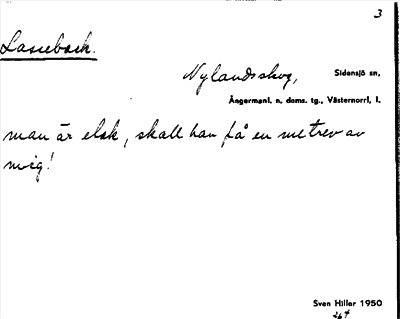 3
Lasseback.
Nylandsskog, Sidensjö sn,
Ångermanl. n. doms. tg., Västernorrl. l.
man är elak, skall han få en metrev av
mig!
Sven Hiller 1950